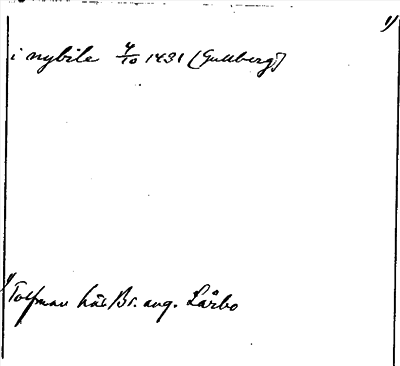 1)
i nybile 4/10 1431 (Gullberg)
1) Tolfman här Br. avg. Lårbo